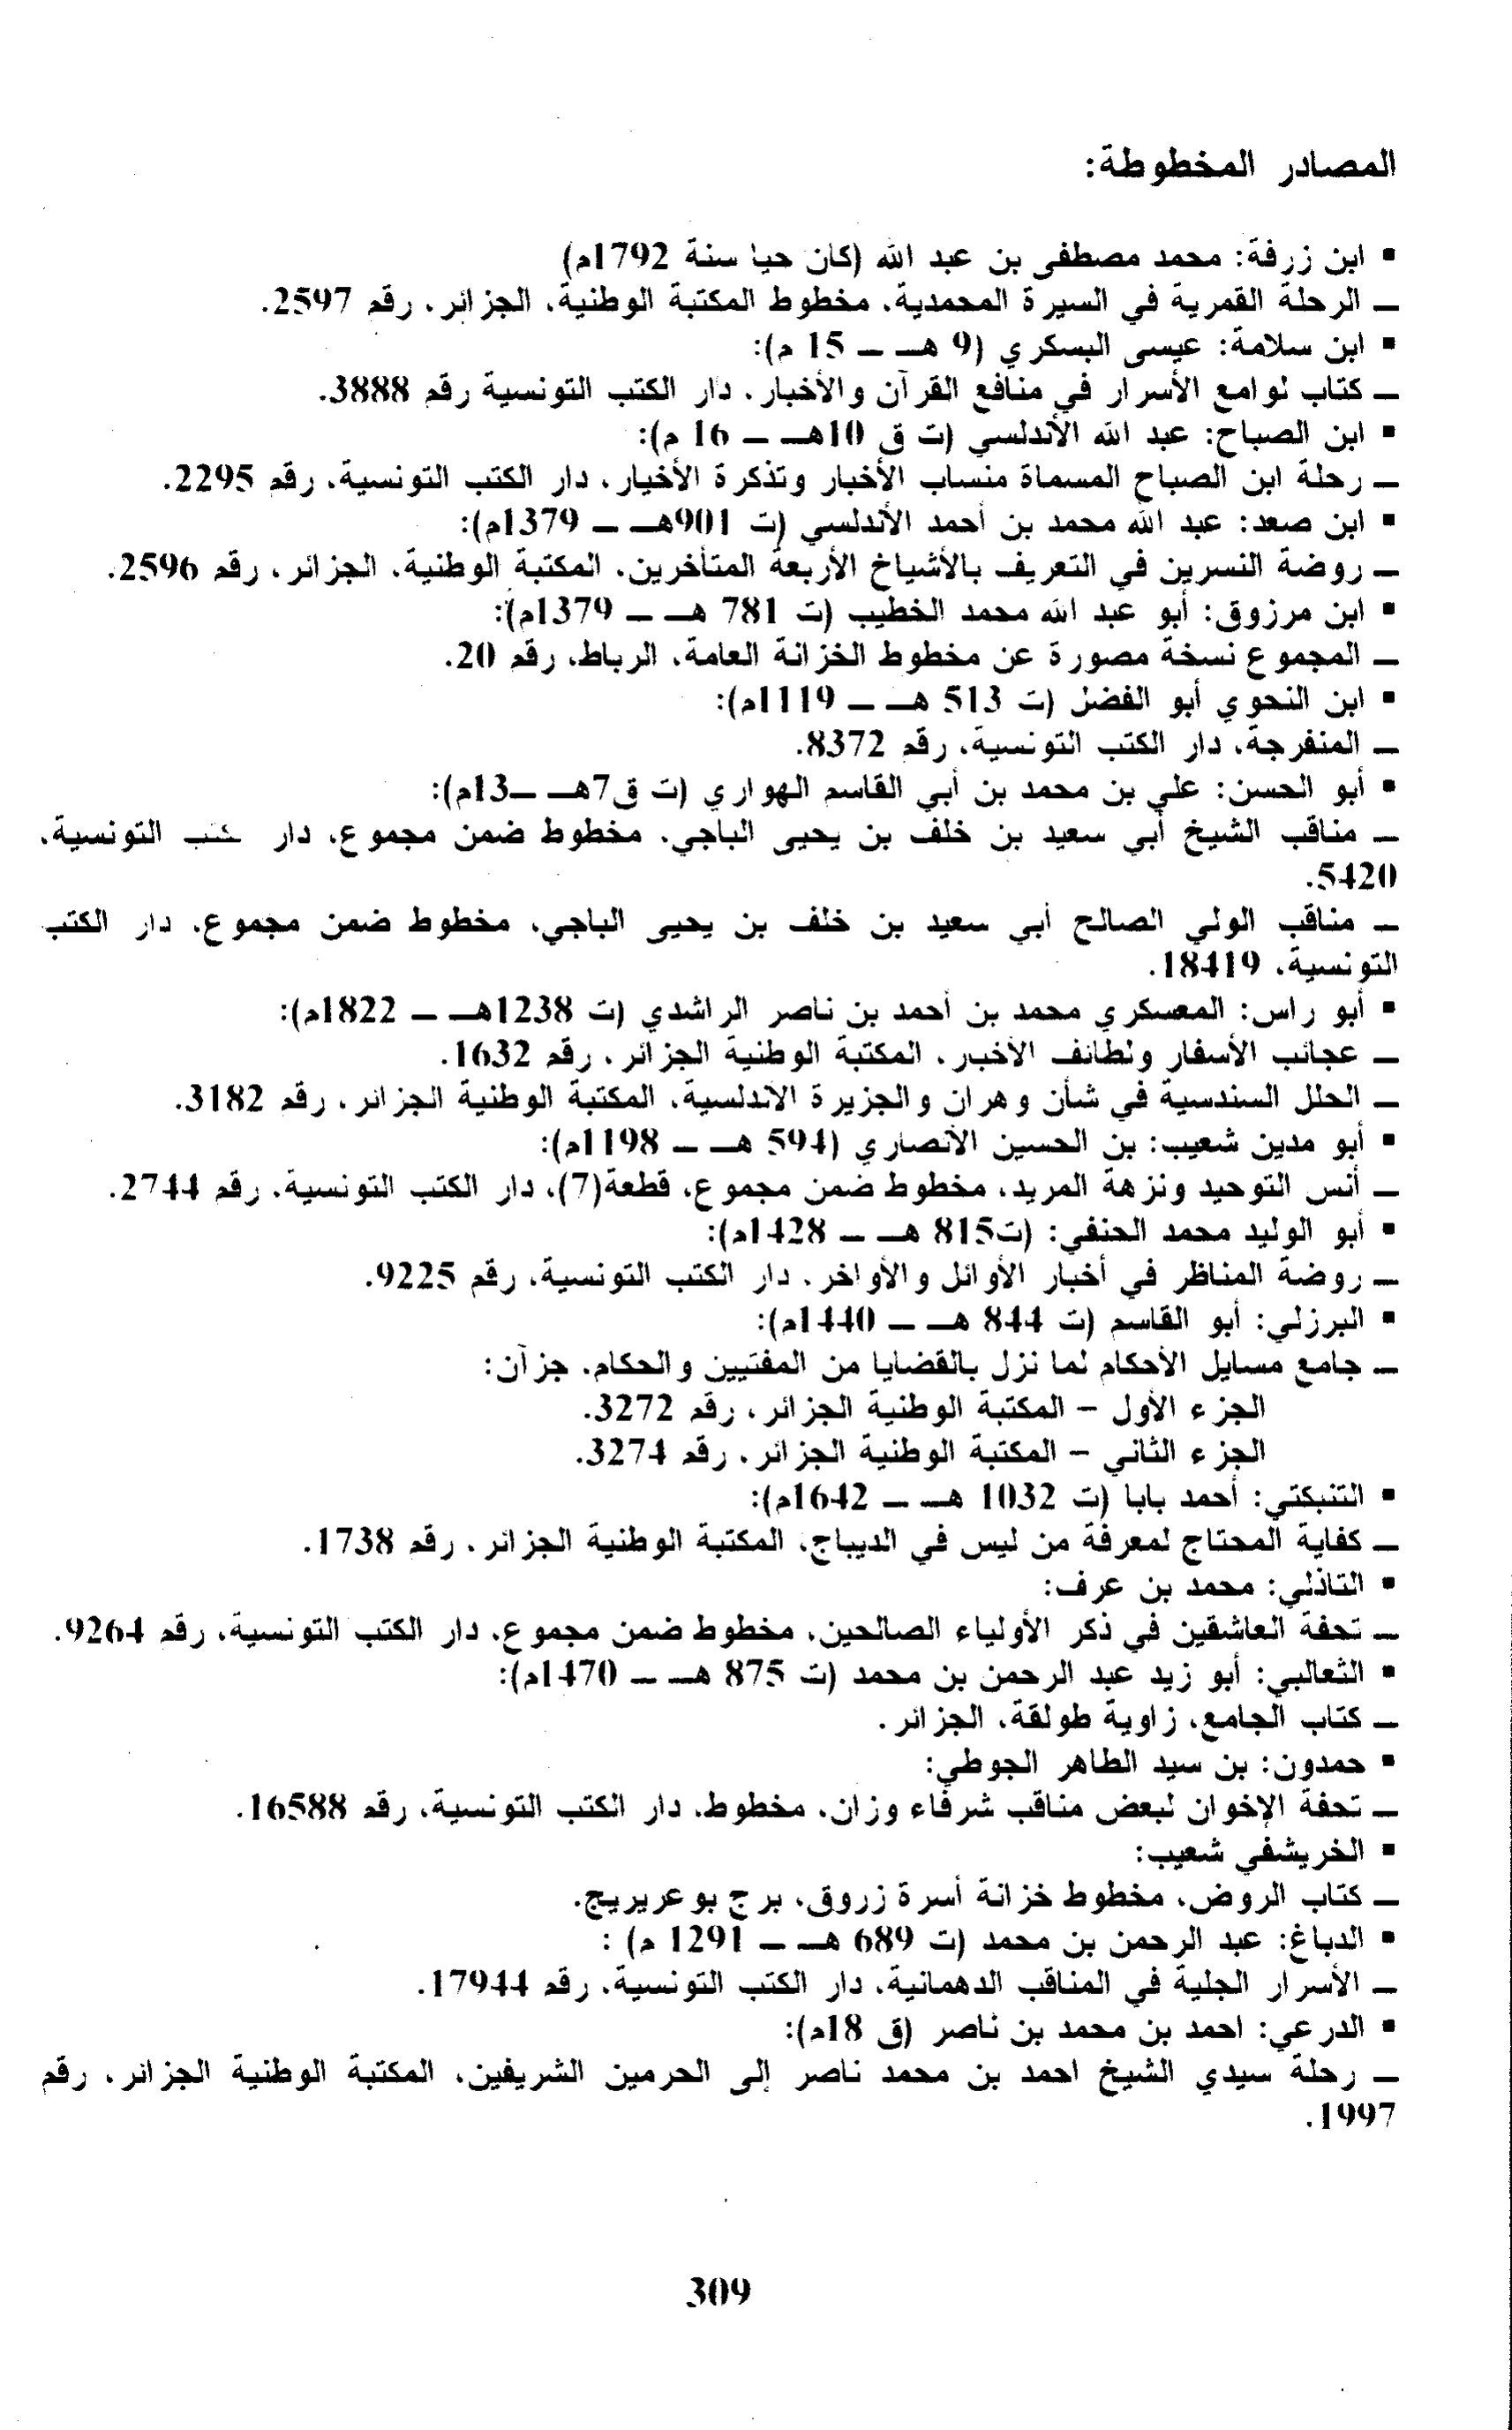 المصادر المخطوطة:
▪ ابن زرفة: محمد مصطفى بن عبد الله (كان حيا سنة 1792م)
– الرحلة القمرية في السيرة المحمدية، مخطوط المكتبة الوطنية، الجزائر، رقم 2597.
▪ ابن سلامة: عيسى البسكري (9 هـ – 15 م):
– كتاب لوامع الأسرار في منافع القرآن والأخبار، دار الكتب التونسية رقم 3888.
▪ ابن الصباح: عبد الله الأندلسي (ت ق 10هـ – 16 م):
– رحلة ابن الصباح المسماة منساب الأخبار وتذكرة الأخيار، دار الكتب التونسية، رقم 2295.
▪ ابن صعد: عبد الله محمد بن أحمد الأندلسي (ت 901هـ – 1379م):
– روضة النسرين في التعريف بالأشياخ الأربعة المتأخرين، المكتبة الوطنية، الجزائر، رقم 2596.
▪ ابن مرزوق: أبو عبد الله محمد الخطيب (ت 781 هـ – 1379م):
– المجموع نسخة مصورة عن مخطوط الخزانة العامة، الرباط، رقم 20.
▪ ابن النحوي أبو الفضل (ت 513 هـ – 1119م):
– المنفرجة، دار الكتب التونسية، رقم 8372.
▪ أبو الحسن: علي بن محمد بن أبي القاسم الهواري (ت ق7هـ –13م):
– مناقب الشيخ أبي سعيد بن خلف بن يحيى الباجي، مخطوط ضمن مجموع، دار التونسية،
5420.
– مناقب الولي الصالح أبي سعيد بن خلف بن يحيى الباجي، مخطوط ضمن مجموع، دار الكتب
التونسية، 18419.
▪ أبو راس: المعسكري محمد بن أحمد بن ناصر الراشدي (ت 1238هـ – 1822م):
– عجائب الأسفار ولطائف الأخبر، المكتبة الوطنية الجزائر، رقم 1632.
– الحلل السندسية في شأن وهران والجزيرة الأندلسية، المكتبة الوطنية الجزائر، رقم 3182.
▪ أبو مدين شعيب: بن الحسين الأنصاري (594 هـ – 1198م):
– أنس التوحيد ونزهة المريد، مخطوط ضمن مجموع، قطعة(7)، دار الكتب التونسية، رقم 2744.
▪ أبو الوليد محمد الحنفي: (ت815 هـ – 1428م):
– روضة المناظر في أخبار الأوائل والأواخر، دار الكتب التونسية، رقم 9225.
▪ البرزلي: أبو القاسم (ت 844 هـ – 1440م):
– جامع مسايل الأحكام لما نزل بالقضايا من المفتيين والحكام، جزآن:
الجزء الأول – المكتبة الوطنية الجزائر، رقم 3272.
الجزء الثاني – المكتبة الوطنية الجزائر، رقم 3274.
▪ التنبكتي: أحمد بابا (ت 1032 هـ – 1642م):
– كفاية المحتاج لمعرفة من ليس في الديباج، المكتبة الوطنية الجزائر، رقم 1738.
▪ التاذلي: محمد بن عرف:
– تحفة العاشقين في ذكر الأولياء الصالحين، مخطوط ضمن مجموع، دار الكتب التونسية، رقم 9264.
▪ الثعالبي: أبو زيد عبد الرحمن بن محمد (ت 875 هـ – 1470م):
– كتاب الجامع، زاوية طولقة، الجزائر.
▪ حمدون: بن سيد الطاهر الجوطي:
– تحفة الإخوان لبعض مناقب شرفاء وزان، مخطوط، دار الكتب التونسية، رقم 16588.
▪ الخريشفي شعيب:
– كتاب الروض، مخطوط خزانة أسرة زروق، برج بوعريريج.
▪ الدباغ: عبد الرحمن بن محمد (ت 689 هـ – 1291 م) :
– الأسرار الجلية في المناقب الدهمانية، دار الكتب التونسية، رقم 17944.
▪ الدرعي: احمد بن محمد بن ناصر (ق 18م):
– رحلة سيدي الشيخ احمد بن محمد ناصر إلى الحرمين الشريفين، المكتبة الوطنية الجزائر، رقم
1997.
309